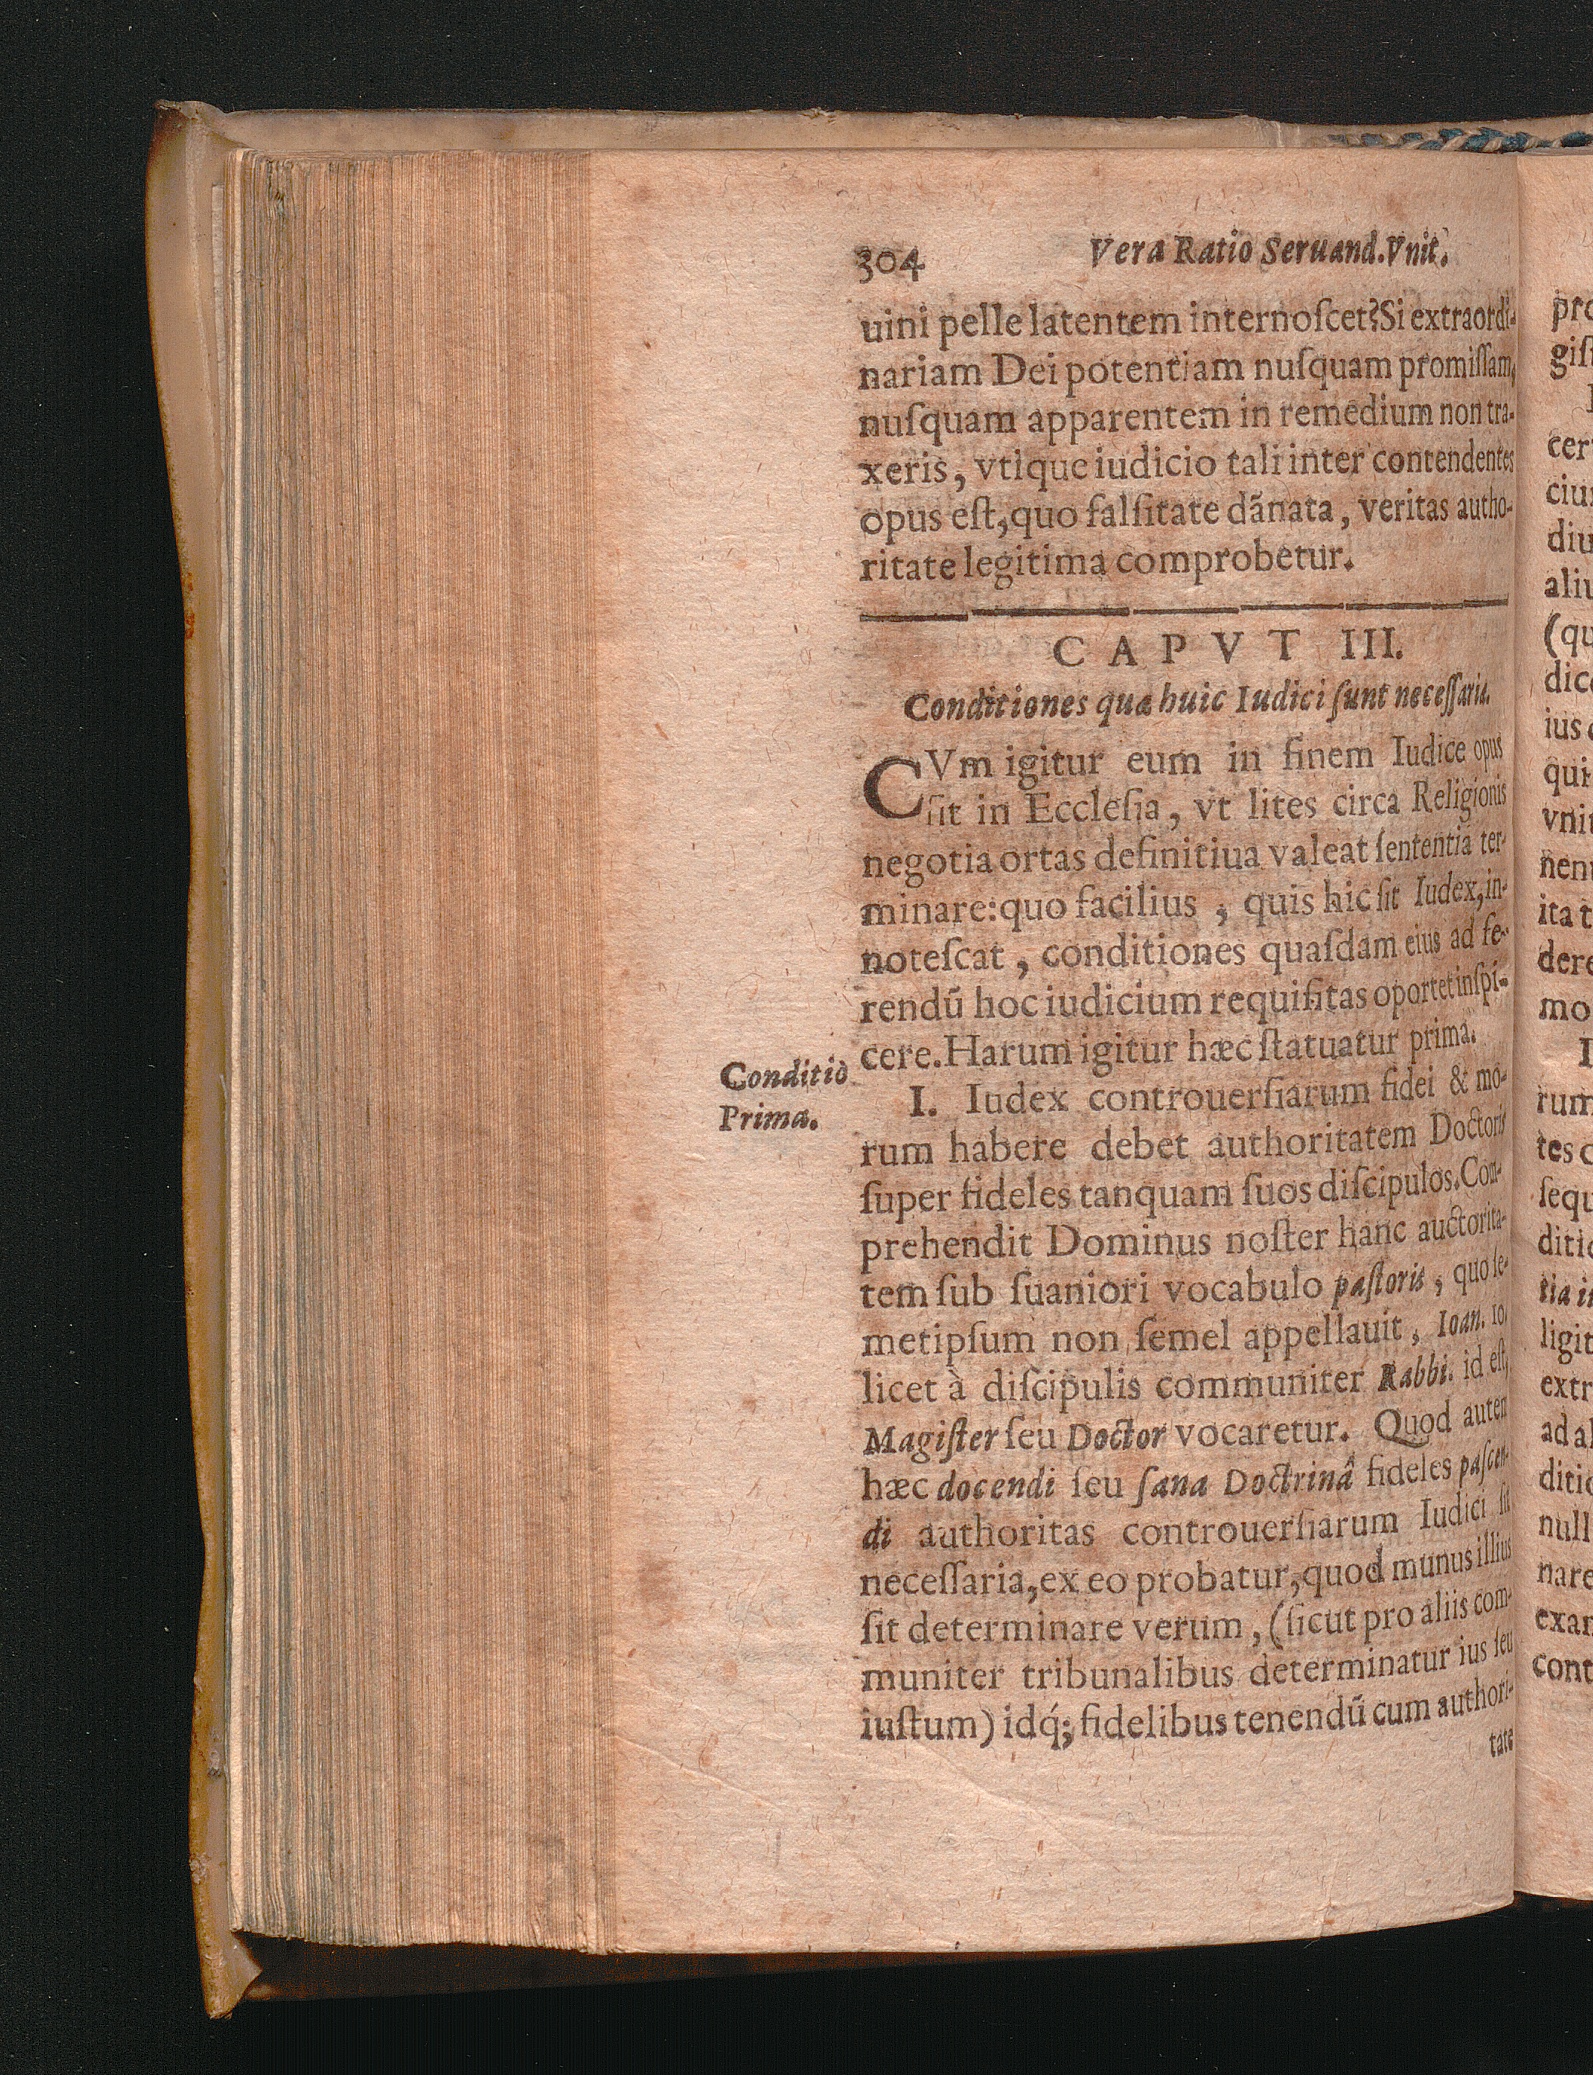 304 Vera Ratio Seruand.Vnit.
uini pelle latentem internoſcet?Si extraordi-
nariam Dei potentiam nuſquam promiſſam,
nuſquam apparentem in remedium non tra-
xeris, vtique iudicio tali inter contendentes
opus eſt,quo falſitate dãnata, veritas autho-
ritate legitima comprobetur.
CAPVT III.
Conditiones quæ huic Iudici ſunt neceſſariæ.
CVm igitur eum in finem Iudice opus
ſit in Eccleſia, vt lites circa Religionis
negotia ortas definitiua valeat ſententia ter-
minare:quo facilius, quis hic ſit Iudex,in-
noteſcat, conditiones quaſdam eius ad fe-
rendũ hoc iudicium requiſitas oportet inſpi-
cere.Harum igitur hæc ſtatuatur prima.
Conditio
Prima.
I. Iudex controuerſiarum fidei & mo-
rum habere debet authoritatem Doctoris
ſuper fideles tanquam ſuos diſcipulos.Com-
prehendit Dominus noſter hanc auctorita-
tem ſub ſuaniori vocabulo paſtoris, quo ſe-
metipſum non ſemel appellauit, Ioan. 10.
licet à diſcipulis communiter Rabbi. id eſt,
Magiſter ſeu Doctor vocaretur. Quod autem
hæc docendi ſeu ſana Doctrinâ fideles paſcen-
di authoritas controuerſiarum Iudici ſit
neceſſaria,ex eo probatur,quod munus illius
ſit determinare verum, (ſicut pro aliis com-
muniter tribunalibus determinatur ius ſeu
iuſtum) idq́; fidelibus tenendũ cum authori-
tate
pro
giſ
cer
ciu
diu
aliu
(qu
dice
ius
qui
vni
nen
ita t
dere
mo
rum
tes c
ſequ
ditio
tia i
ligit
extr
ad a
ditio
null
nare
exa
cont